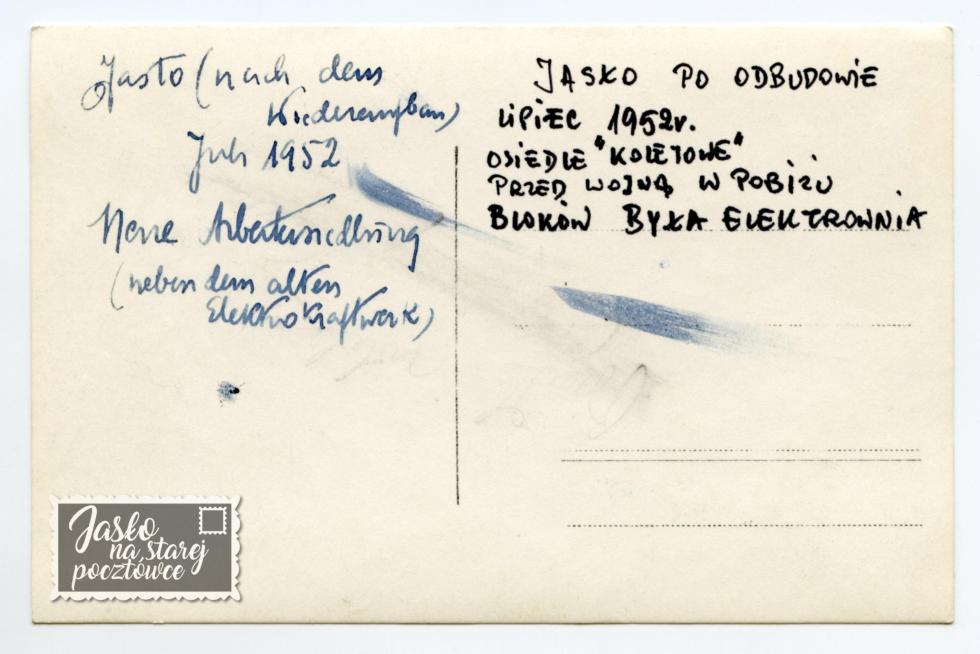 Jasło (nach dem
Wiederaufbau)
Juli 1952
Neue Arbeitersiedlung
(neben dem alten
Elektrokraftwerk)
JASŁO PO ODBUDOWIE
LIPIEC 1952r.
OSIEDLE "KOLEJOWE"
PRZED WOJNĄ W POBIŻU
BLOKÓW BYŁA ELEKTROWNIA
Jasło
na starej
pocztówce